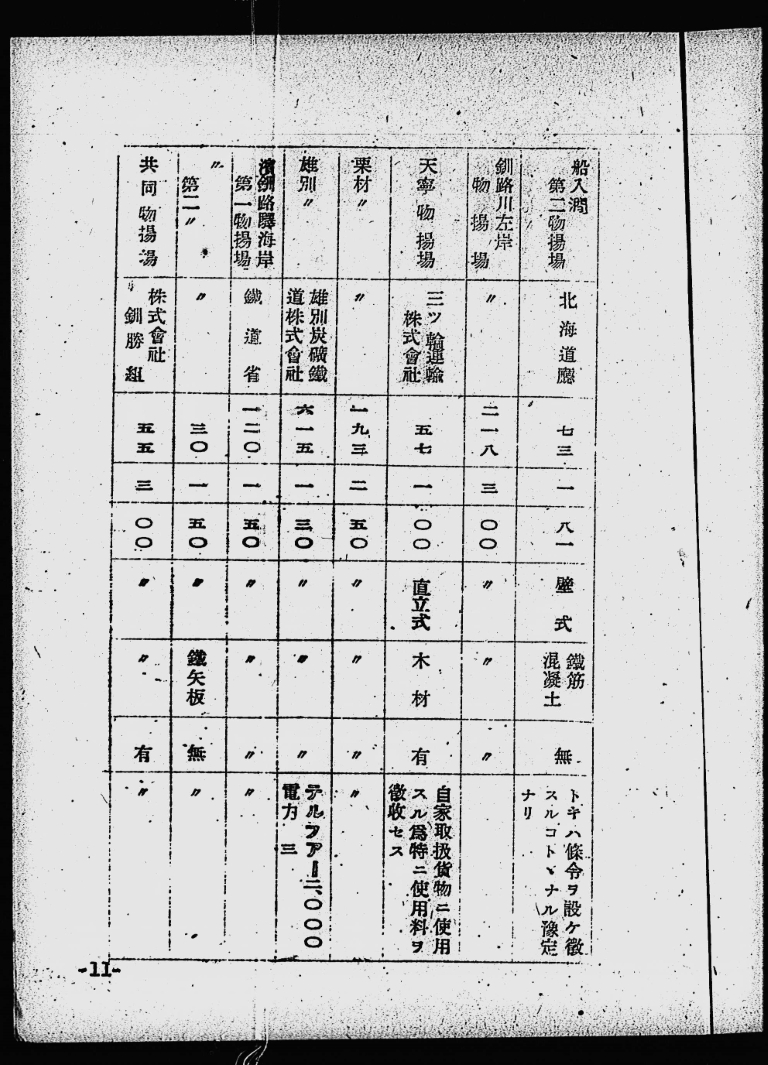 船入澗
第二物揚場
北海道廳
七三
一
八一
壁式
鐵筋
混凝土
無
トキハ條令ヲ設ケ徵
スルコトヽナル豫定
ナリ
釧路川左岸
物揚場
〃
二一八
三
〇〇
〃
〃
〃
天寧物揚場
三ツ輪運輸
株式會社
五七
一
〇〇
直立式
木材
有
自家取扱貨物ニ使用
スル爲特ニ使用料ヲ
徵收セス
栗材〃
〃
一九三
二
五〇
〃
〃
〃
〃
雄別〃
雄別炭礦鐵
道株式會社
六一五
一
三〇
〃
〃
〃
テルファー二、〇〇〇
電力 三
濱釧路驛海岸
第一物揚場
鐵道省
一二〇
一
五〇
〃
〃
〃
〃
〃
第二〃
〃
三〇
一
五〇
〃
鐵矢板
無
〃
共同物揚場
株式會社
釧勝組
五五
三
〇〇
〃
〃
有
〃
-11-